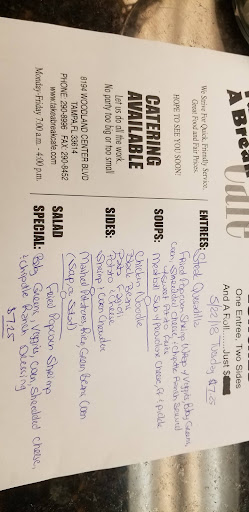 A Break
Cafe
We Strive For Quick, Friendly, Service,
Great Food and Fair Prices.
HOPE TO SEE YOU SOON!
CATERING
AVAILABLE
Let us do all the work
No party too big or too small
8194 WOODLAND CENTER BLVD
TAMPA, FL 33614
PHONE: 290-8996 FAX: 290-8452
www.takeabreakcafe.com
Monday-Friday 7:00 a.m. - 4:00 p.m.
One Entree, Two Sides
And A Roll: Just
5/22/18 Tuesday $7.25
ENTREES:
Steak Quesadilla
Fried Popcorn Shrimp
Baby Greens,
Corn, shredded cheese, Chipotle Ranch
Sweet Potato Fries
SOUPS:
Chicken Noodle
Black Bean
Pasta Fagioli
Potato & Cheese
Shrimp & Corn Chowder
SIDES:
Mashed Potatoes, Rice, Green Beans, Corn
(Soup or Salad)
SALAD
SPECIAL:
Fried Popcorn Shrimp
Baby Greens, Veggies, Corn, Shredded Cheese,
& Chipotle Ranch Dressing
$7.25